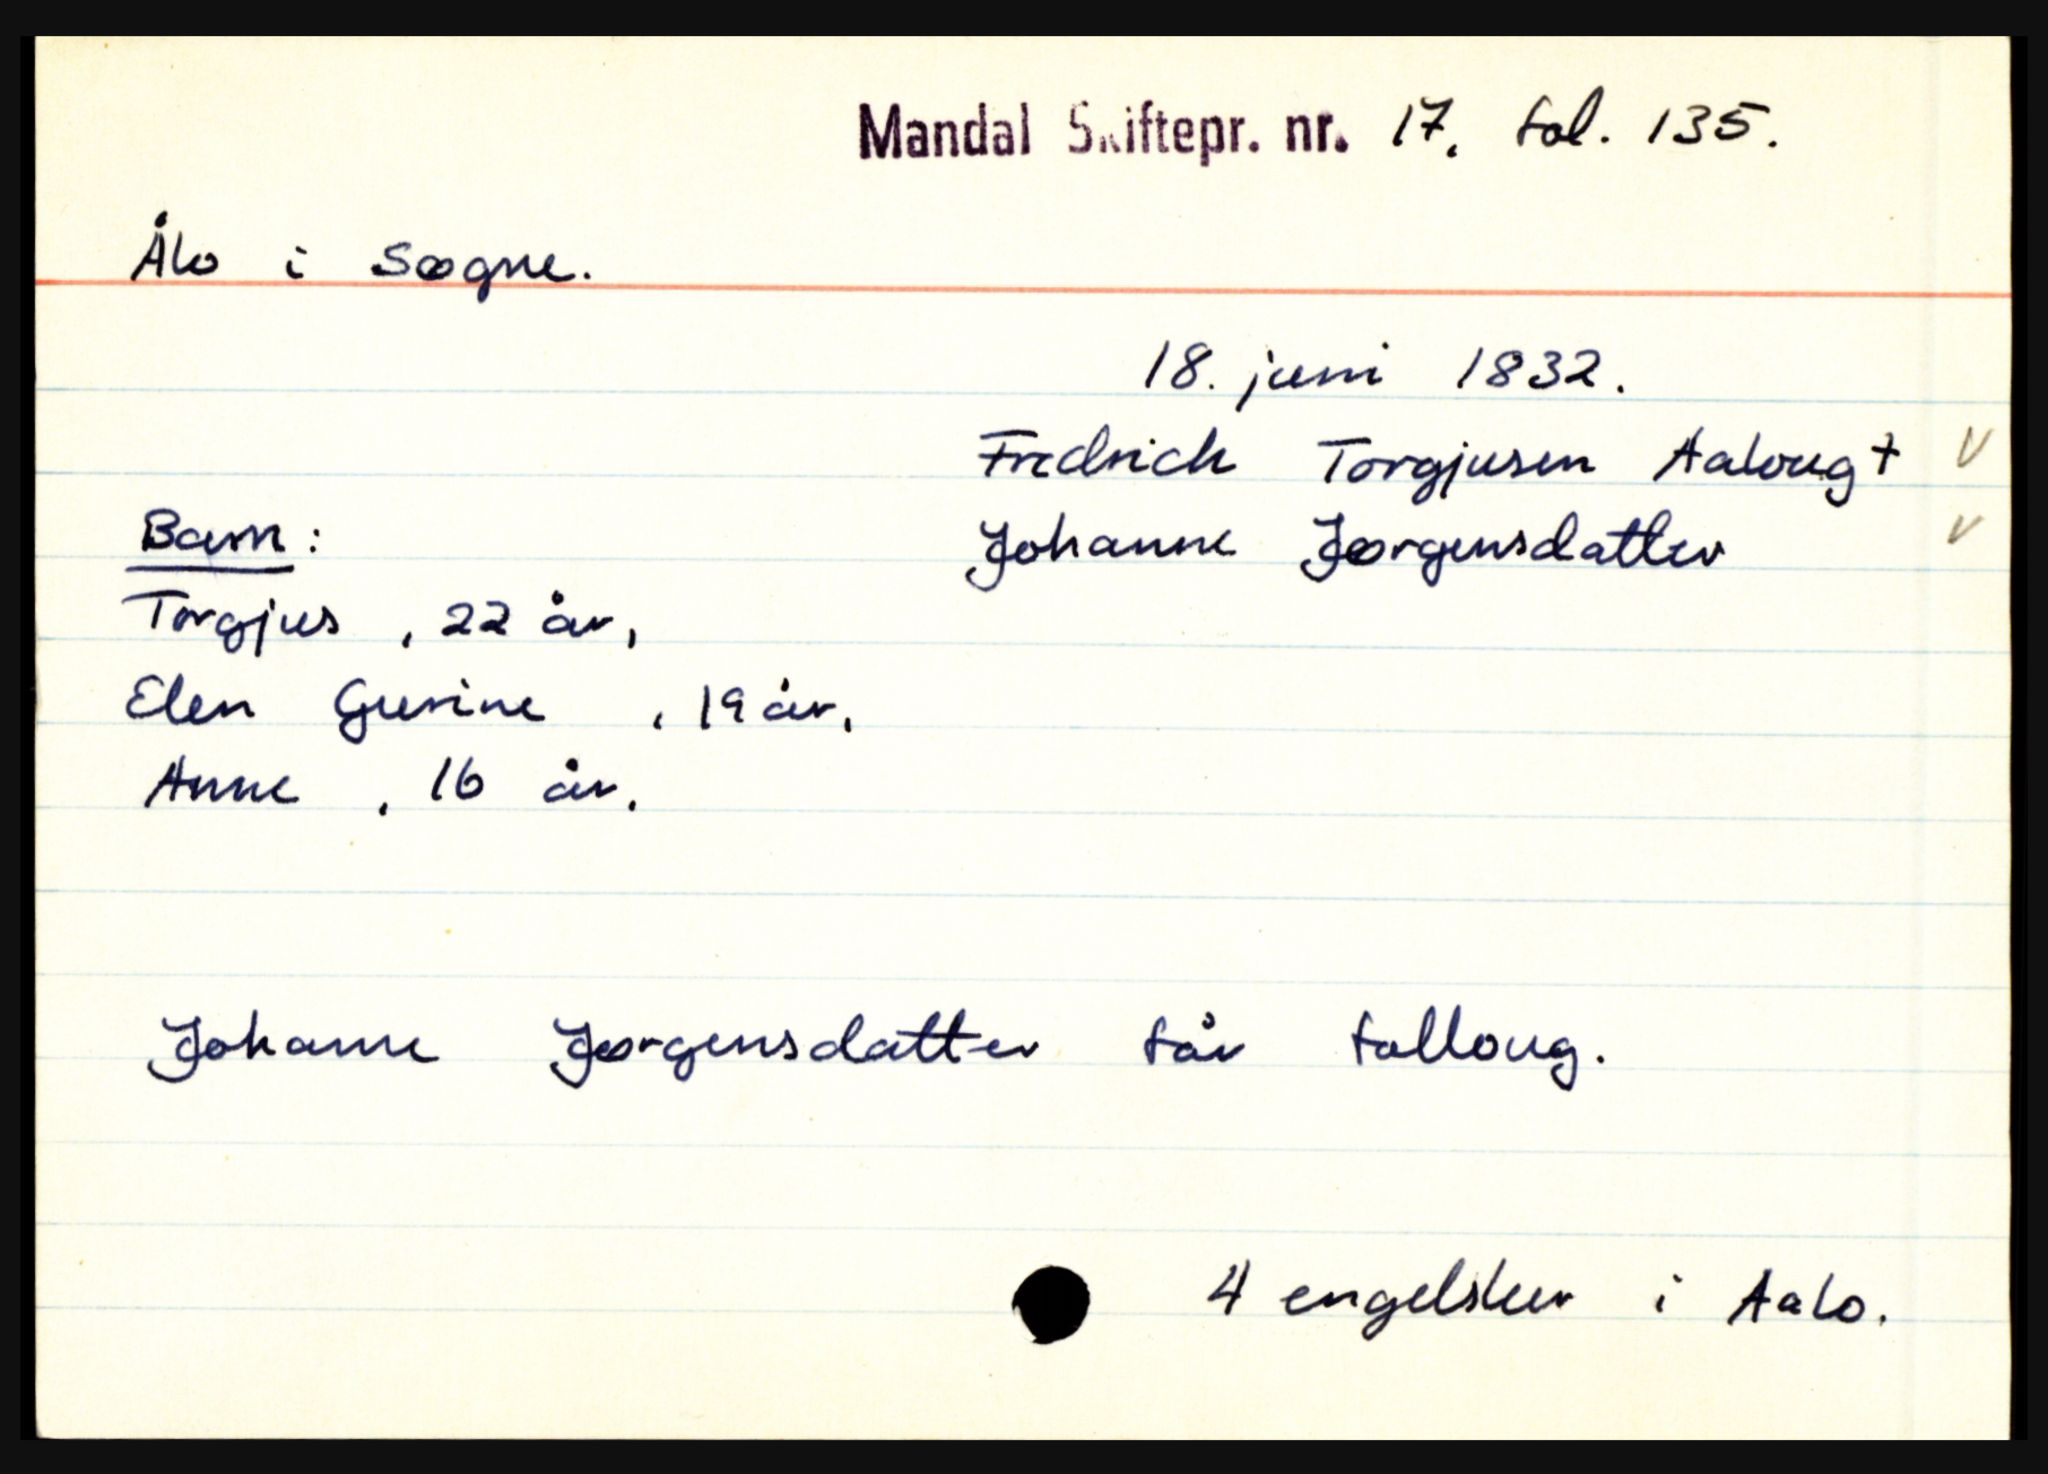 Mandal Skiftepr. nr. 17, fol. 135.
Ålo i Søgne.
18. juni 1832.
Fredrich Torgjusen Aaloug † V
Barn: Johanne Jørgensdatter V
Torgjus , 22 år,
Elen Gurine , 19 år,
Anne , 16 år.
Johanne Jørgensdatter får falloug.
4 engelsker i Aalo.